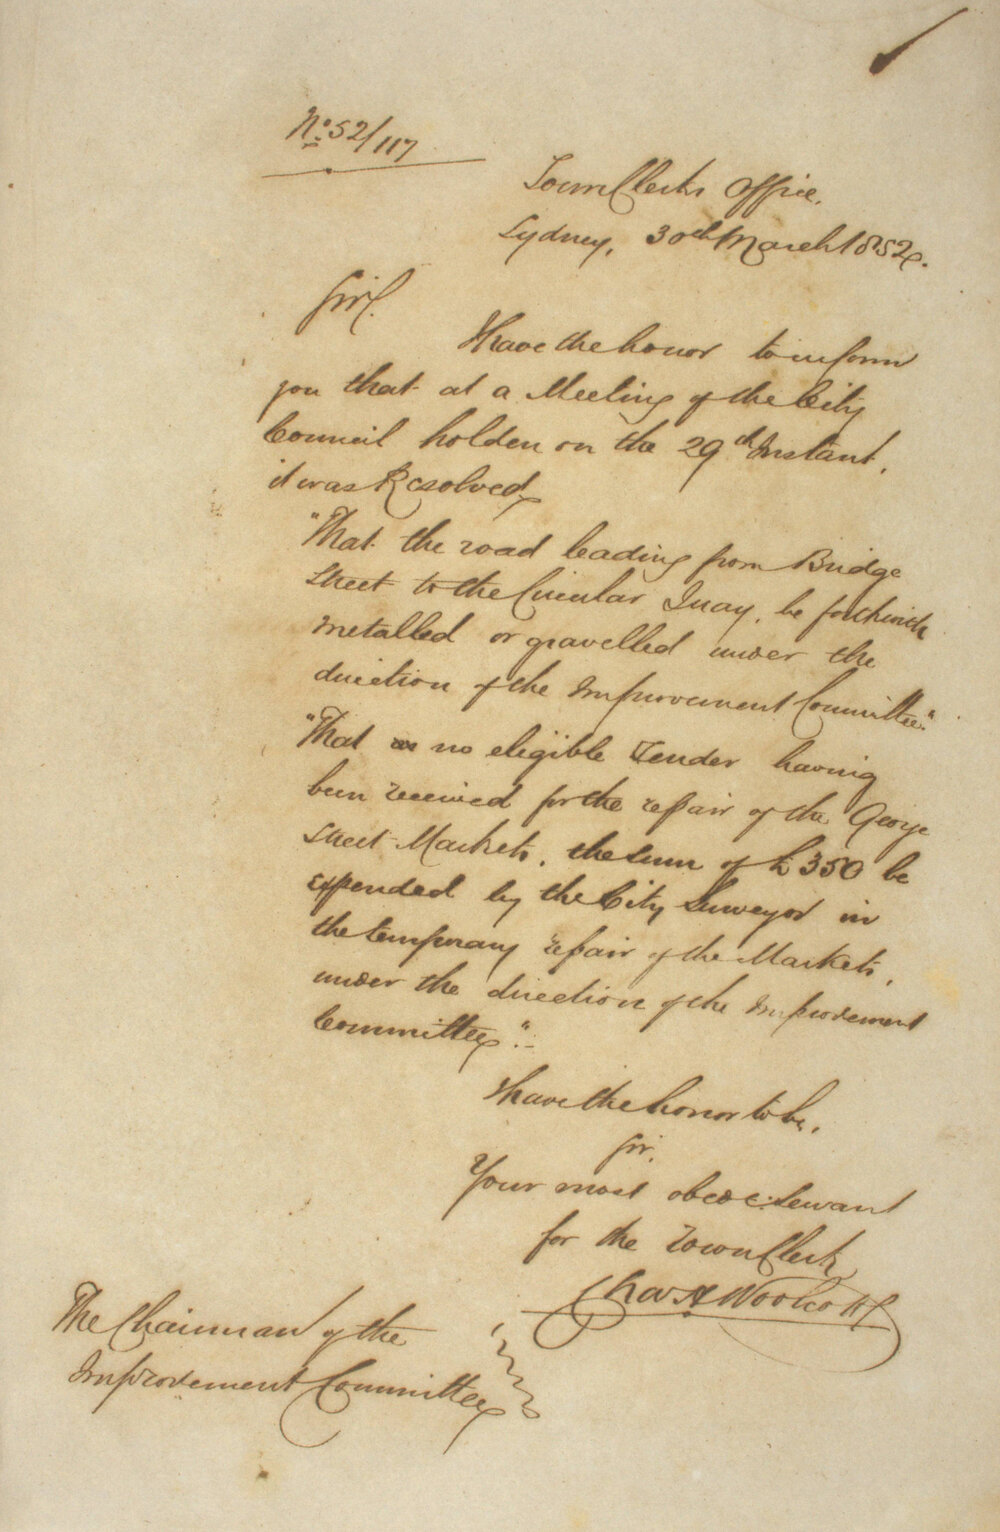 No. 52/117
Town Clerks Office.
Sydney, 30th March 1852.
Sir,
I have the honor to inform
you that at a Meeting of the City
Council holden on the 29th Instant,
it was Resolved
"That the road leading from Bridge
Street to the Circular Quay, be forthwith
metalled or gravelled under the
direction of the Improvement Committee"
"That no eligible Tender having
been received for the repair of the George
Street Markets, the sum of £350 be
expended by the City Surveyor in
the temporary repair of the Markets,
under the direction of the Improvement
Committee".
I have the honor to be,
Sir,
Your most obedt. Servant
for the Town Clerk
Chas H Woolcott
The Chairman of the
Improvement Committee